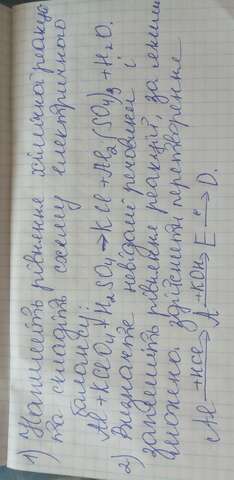 1) Напишіть рівняння хімічна реакція
та складіть схему електричного
балансу:
Al + KClO4 + H2SO4 → KCl + Al2(SO4)3 + H2O.
2) Визначте невідомі речовини і
запишіть рівняння реакцій, за якими
можна здійснити перетворення
Al +HCl→ A +KOH→ E t→ D.